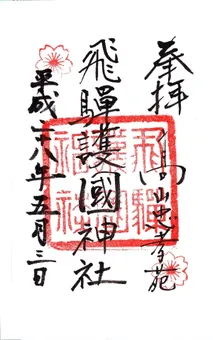 奉拝
高山忠孝苑
飛驒護國神社
平成二八年五月三日
飛驒護國神社